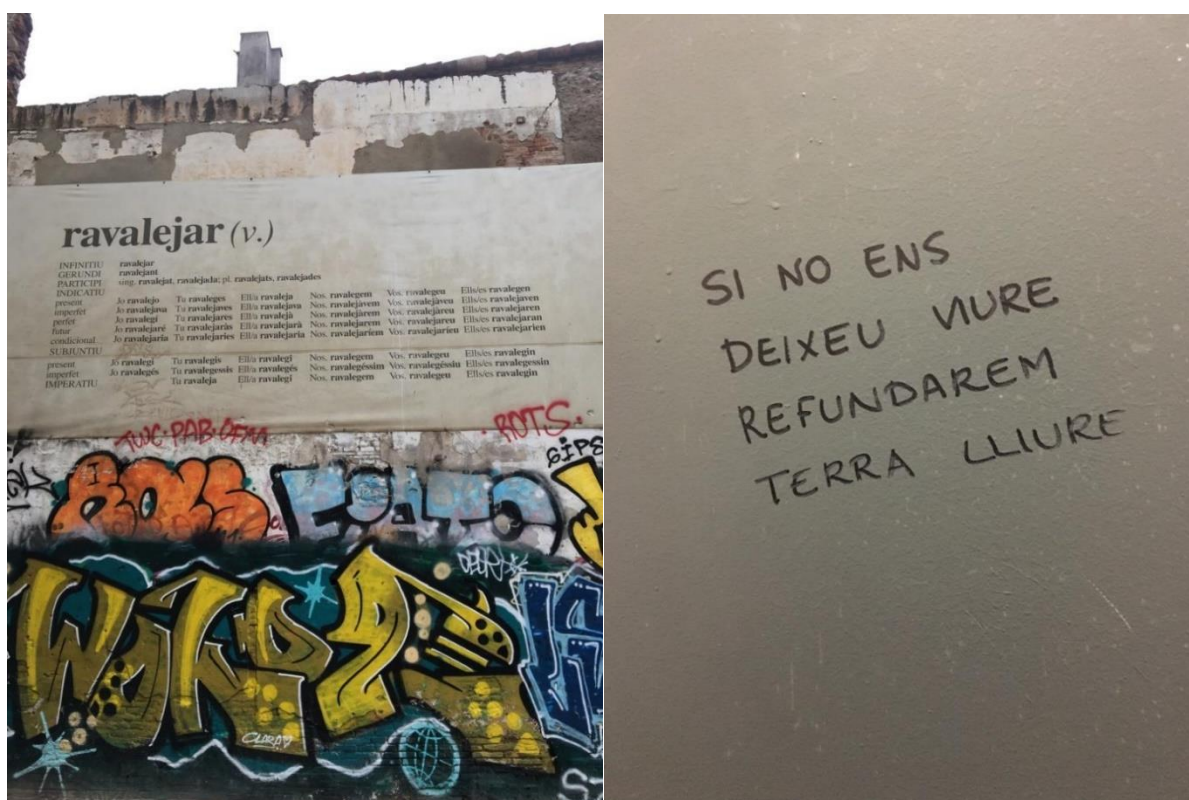 ravalejar (v.)
INFINITIU ravalejar
GERUNDI ravalejant
PARTICIPI sing. ravalejat, ravalejada; pl. ravalejats, ravalejades
INDICATIU
present Jo ravalejo Tu ravaleges Ell/a ravaleja Nos. ravalegem Vos. ravalegeu Ells/es ravalegen
imperfet Jo ravalejava Tu ravalejaves Ell/a ravalejava Nos. ravalejàvem Vos. ravalejàveu Ells/es ravalejaven
perfet Jo ravalegí Tu ravalejares Ell/a ravalejà Nos. ravalejàrem Vos. ravalejàreu Ells/es ravalejaren
futur Jo ravalejaré Tu ravalejaràs Ell/a ravalejarà Nos. ravalejarem Vos. ravalejareu Ells/es ravalejaran
condicional Jo ravalejaria Tu ravalejaries Ell/a ravalejaria Nos. ravalejaríem Vos. ravalejaríeu Ells/es ravalejarien
SUBJUNTIU
present Jo ravalegi Tu ravalegis Ell/a ravalegi Nos. ravalegem Vos. ravalegeu Ells/es ravalegin
imperfet Jo ravalegés Tu ravalegessis Ell/a ravalegés Nos. ravalegéssim Vos. ravalegéssiu Ells/es ravalegessin
IMPERATIU Tu ravaleja Ell/a ravalegi Nos. ravalegem Vos. ravalegeu Ells/es ravalegin
ROTS
GIPS
CLARA
SI NO ENS
DEIXEU VIURE
REFUNDAREM
TERRA LLIURE